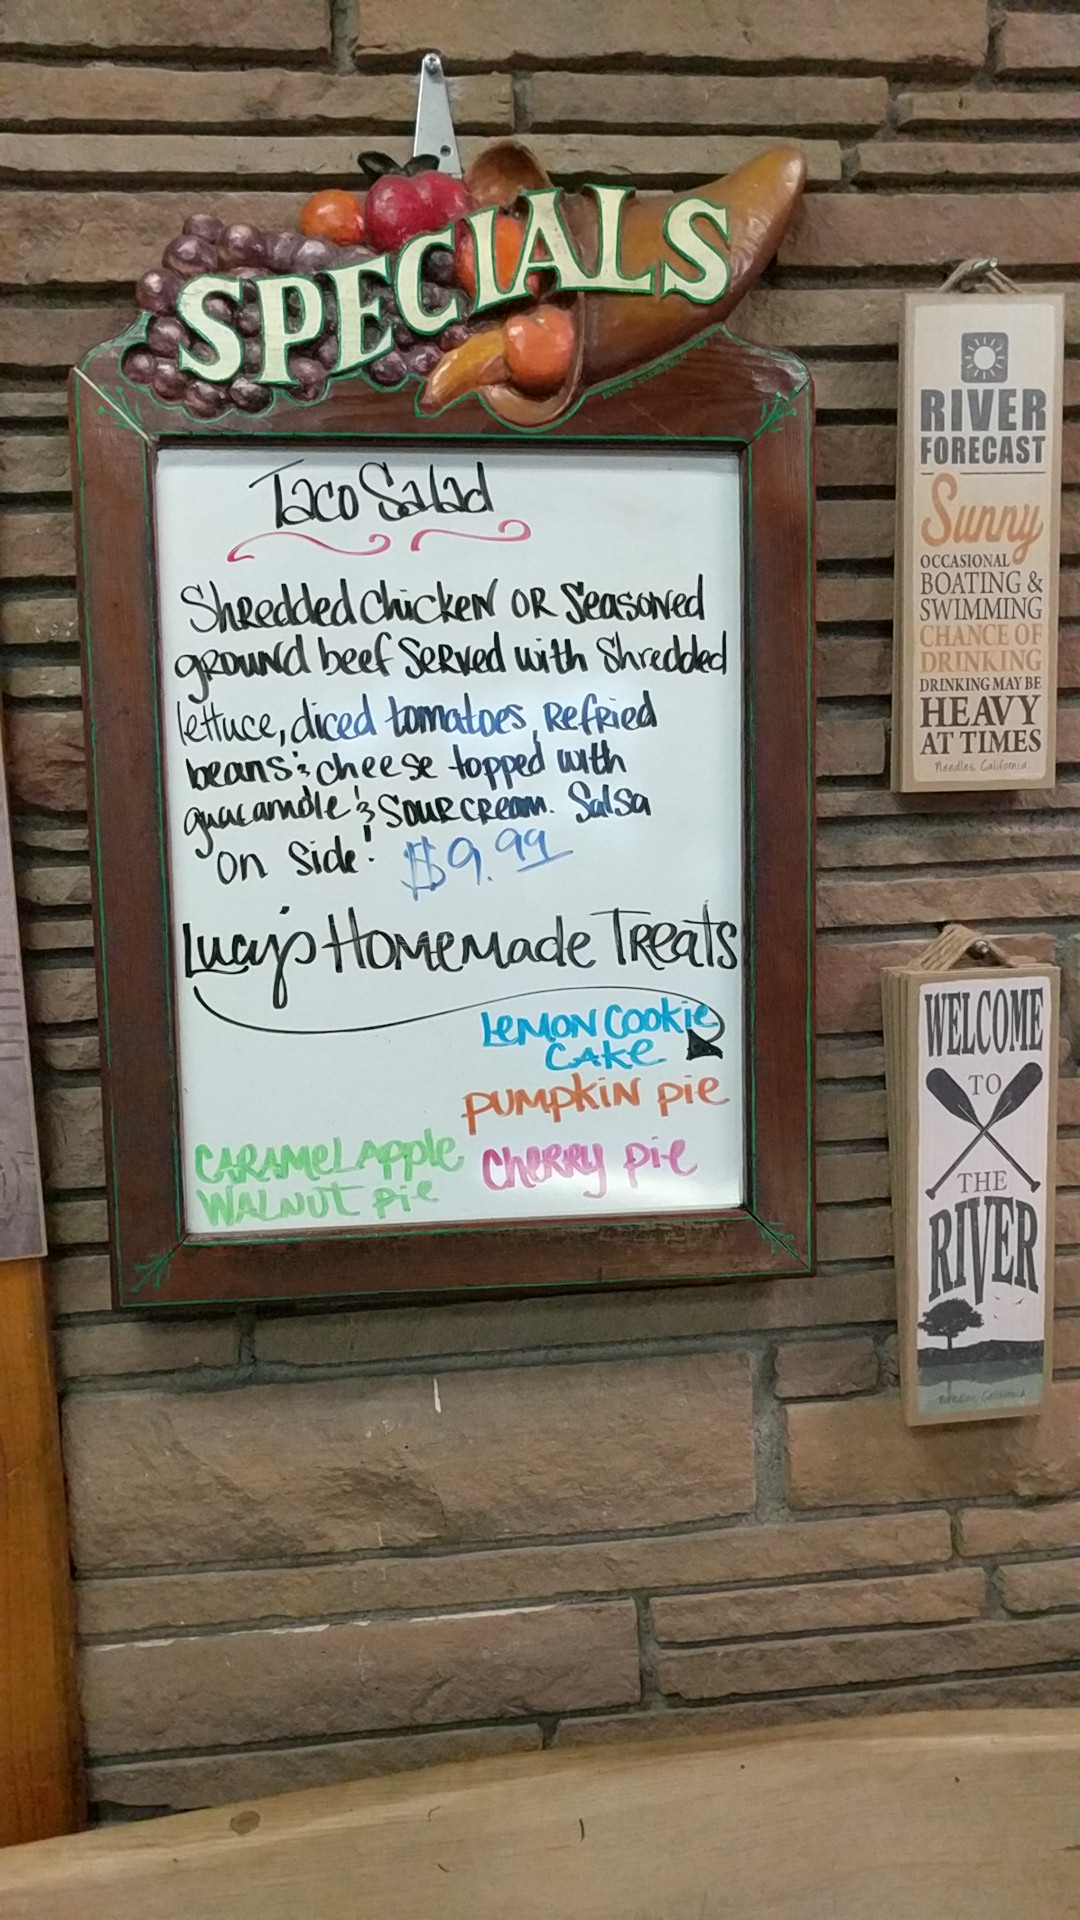 SPECIALS
Taco Salad
Shredded chicken or Seasoned
ground beef served with Shredded
lettuce, diced tomatoes, refried
beans & cheese topped with
guacamole & sour cream. Salsa
on side! $9.99
Lucy's Homemade Treats
Lemon Cookie
Cake
Pumpkin pie
Caramel Apple
Walnut pie
Cherry pie
RIVER
FORECAST
Sunny
OCCASIONAL
BOATING &
SWIMMING
CHANCE OF
DRINKING
DRINKING MAY BE
HEAVY
AT TIMES
Needles, California
WELCOME
TO
THE
RIVER
Needles, California